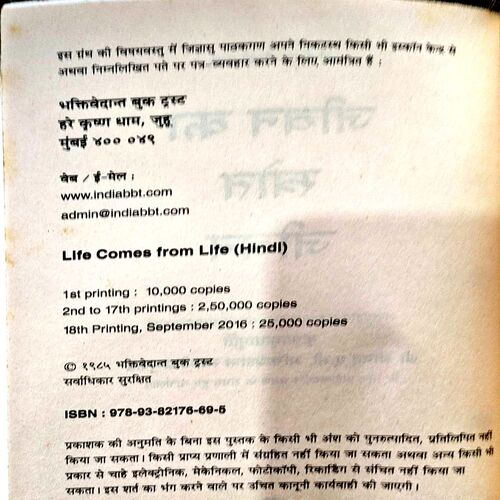 इस ग्रंथ की विषयवस्तु में जिज्ञासु पाठकगण अपने निकटस्थ किसी भी इस्कॉन केन्द्र से
अथवा निम्नलिखित पते पर पत्र-व्यवहार करने के लिए आमंत्रित हैं :
भक्तिवेदान्त बुक ट्रस्ट
हरे कृष्ण धाम, जुहू
मुंबई ४०० ०४९
वेब / ई-मेल :
www.indiabbt.com
admin@indiabbt.com
Life Comes from Life (Hindi)
1st printing : 10,000 copies
2nd to 17th printings : 2,50,000 copies
18th Printing, September 2016 : 25,000 copies
© १९८५ भक्तिवेदान्त बुक ट्रस्ट
सर्वाधिकार सुरक्षित
ISBN : 978-93-82176-69-5
प्रकाशक की अनुमति के बिना इस पुस्तक के किसी भी अंश को पुनरुत्पादित, प्रतिलिपित नहीं
किया जा सकता। किसी प्राप्य प्रणाली में संग्रहित नहीं किया जा सकता अथवा अन्य किसी भी
प्रकार से चाहे इलेक्ट्रोनिक, मेकेनिकल, फोटोकॉपी, रिकार्डिंग से संचित नहीं किया जा
सकता। इस शर्त का भंग करने वाले पर उचित कानूनी कार्यवाही की जाएगी।